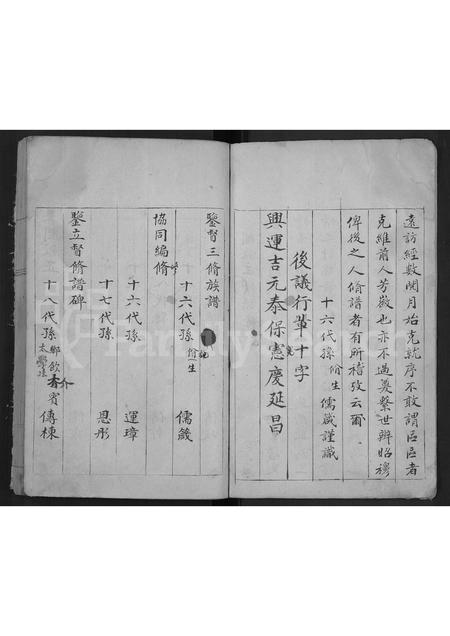 遠訪經數閱月始克就序不敢謂區區者
克維前人芳徽也亦不過奠繫世辨昭穆
俾後之人脩譜者有所稽攷云爾
十六代孫佾生儒箴謹識
後議行輩十字
興運吉元泰保憲慶延昌
鑒督三脩族譜
十六代孫佾生 儒箴
協同編脩
十六代孫 運璋
十七代孫 恩彤
鑒立督脩譜碑
十八代孫鄉飲介賓 傳棟
太學生
FamilySearch